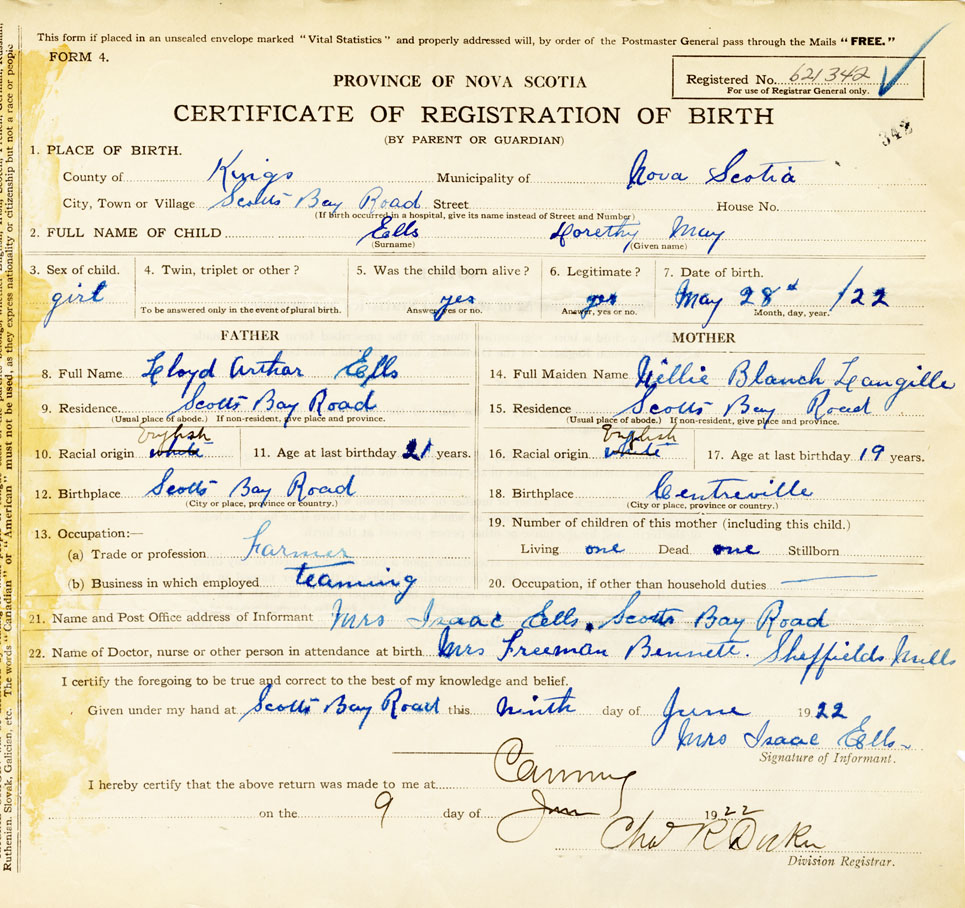 This form if placed in an unsealed envelope marked "Vital Statistics" and properly addressed will, by order of the Postmaster General pass through the Mails "FREE."
FORM 4.
Registered No. 621342
For use of Registrar General only.
PROVINCE OF NOVA SCOTIA
CERTIFICATE OF REGISTRATION OF BIRTH
(BY PARENT OR GUARDIAN)
342
1. PLACE OF BIRTH.
County of Kings Municipality of Nova Scotia
City, Town or Village Scotts Bay Road Street House No.
(If birth occurred in a hospital, give its name instead of Street and Number)
2. FULL NAME OF CHILD Ells Dorethy May
(Surname) (Given name)
3. Sex of child. 4. Twin, triplet or other? 5. Was the child born alive? 6. Legitimate? 7. Date of birth.
girl yes yes May 28th /22
To be answered only in the event of plural birth. Answer, yes or no. Answer, yes or no. Month, day, year.
FATHER MOTHER
8. Full Name Lloyd Arthar Ells 14. Full Maiden Name Nillie Blanch Langille
9. Residence Scotts Bay Road 15. Residence Scotts Bay Road
(Usual place of abode.) If non-resident, give place and province. (Usual place of abode.) If non-resident, give place and province.
English English
10. Racial origin white 11. Age at last birthday 21 years. 16. Racial origin white 17. Age at last birthday 19 years.
12. Birthplace Scotts Bay Road 18. Birthplace Centreville
(City or place, province or country.) (City or place, province or country.)
13. Occupation:— 19. Number of children of this mother (including this child.)
(a) Trade or profession Farmer Living one Dead one Stillborn
(b) Business in which employed teaming 20. Occupation, if other than household duties
21. Name and Post Office address of Informant Mrs Isaac Ells. Scotts Bay Road
22. Name of Doctor, nurse or other person in attendance at birth Mrs Freeman Bennett. Sheffields Mills
I certify the foregoing to be true and correct to the best of my knowledge and belief.
Given under my hand at Scotts Bay Road this ninth day of June 1922
Mrs Isaac Ells
Signature of Informant.
I hereby certify that the above return was made to me at Canning
on the 9 day of Jun 1922
Chas R
Division Registrar.
Ruthenian, Slovak, Galician, etc. The words "Canadian" or "American" must not be used, as they express nationality or citizenship but not a race or people